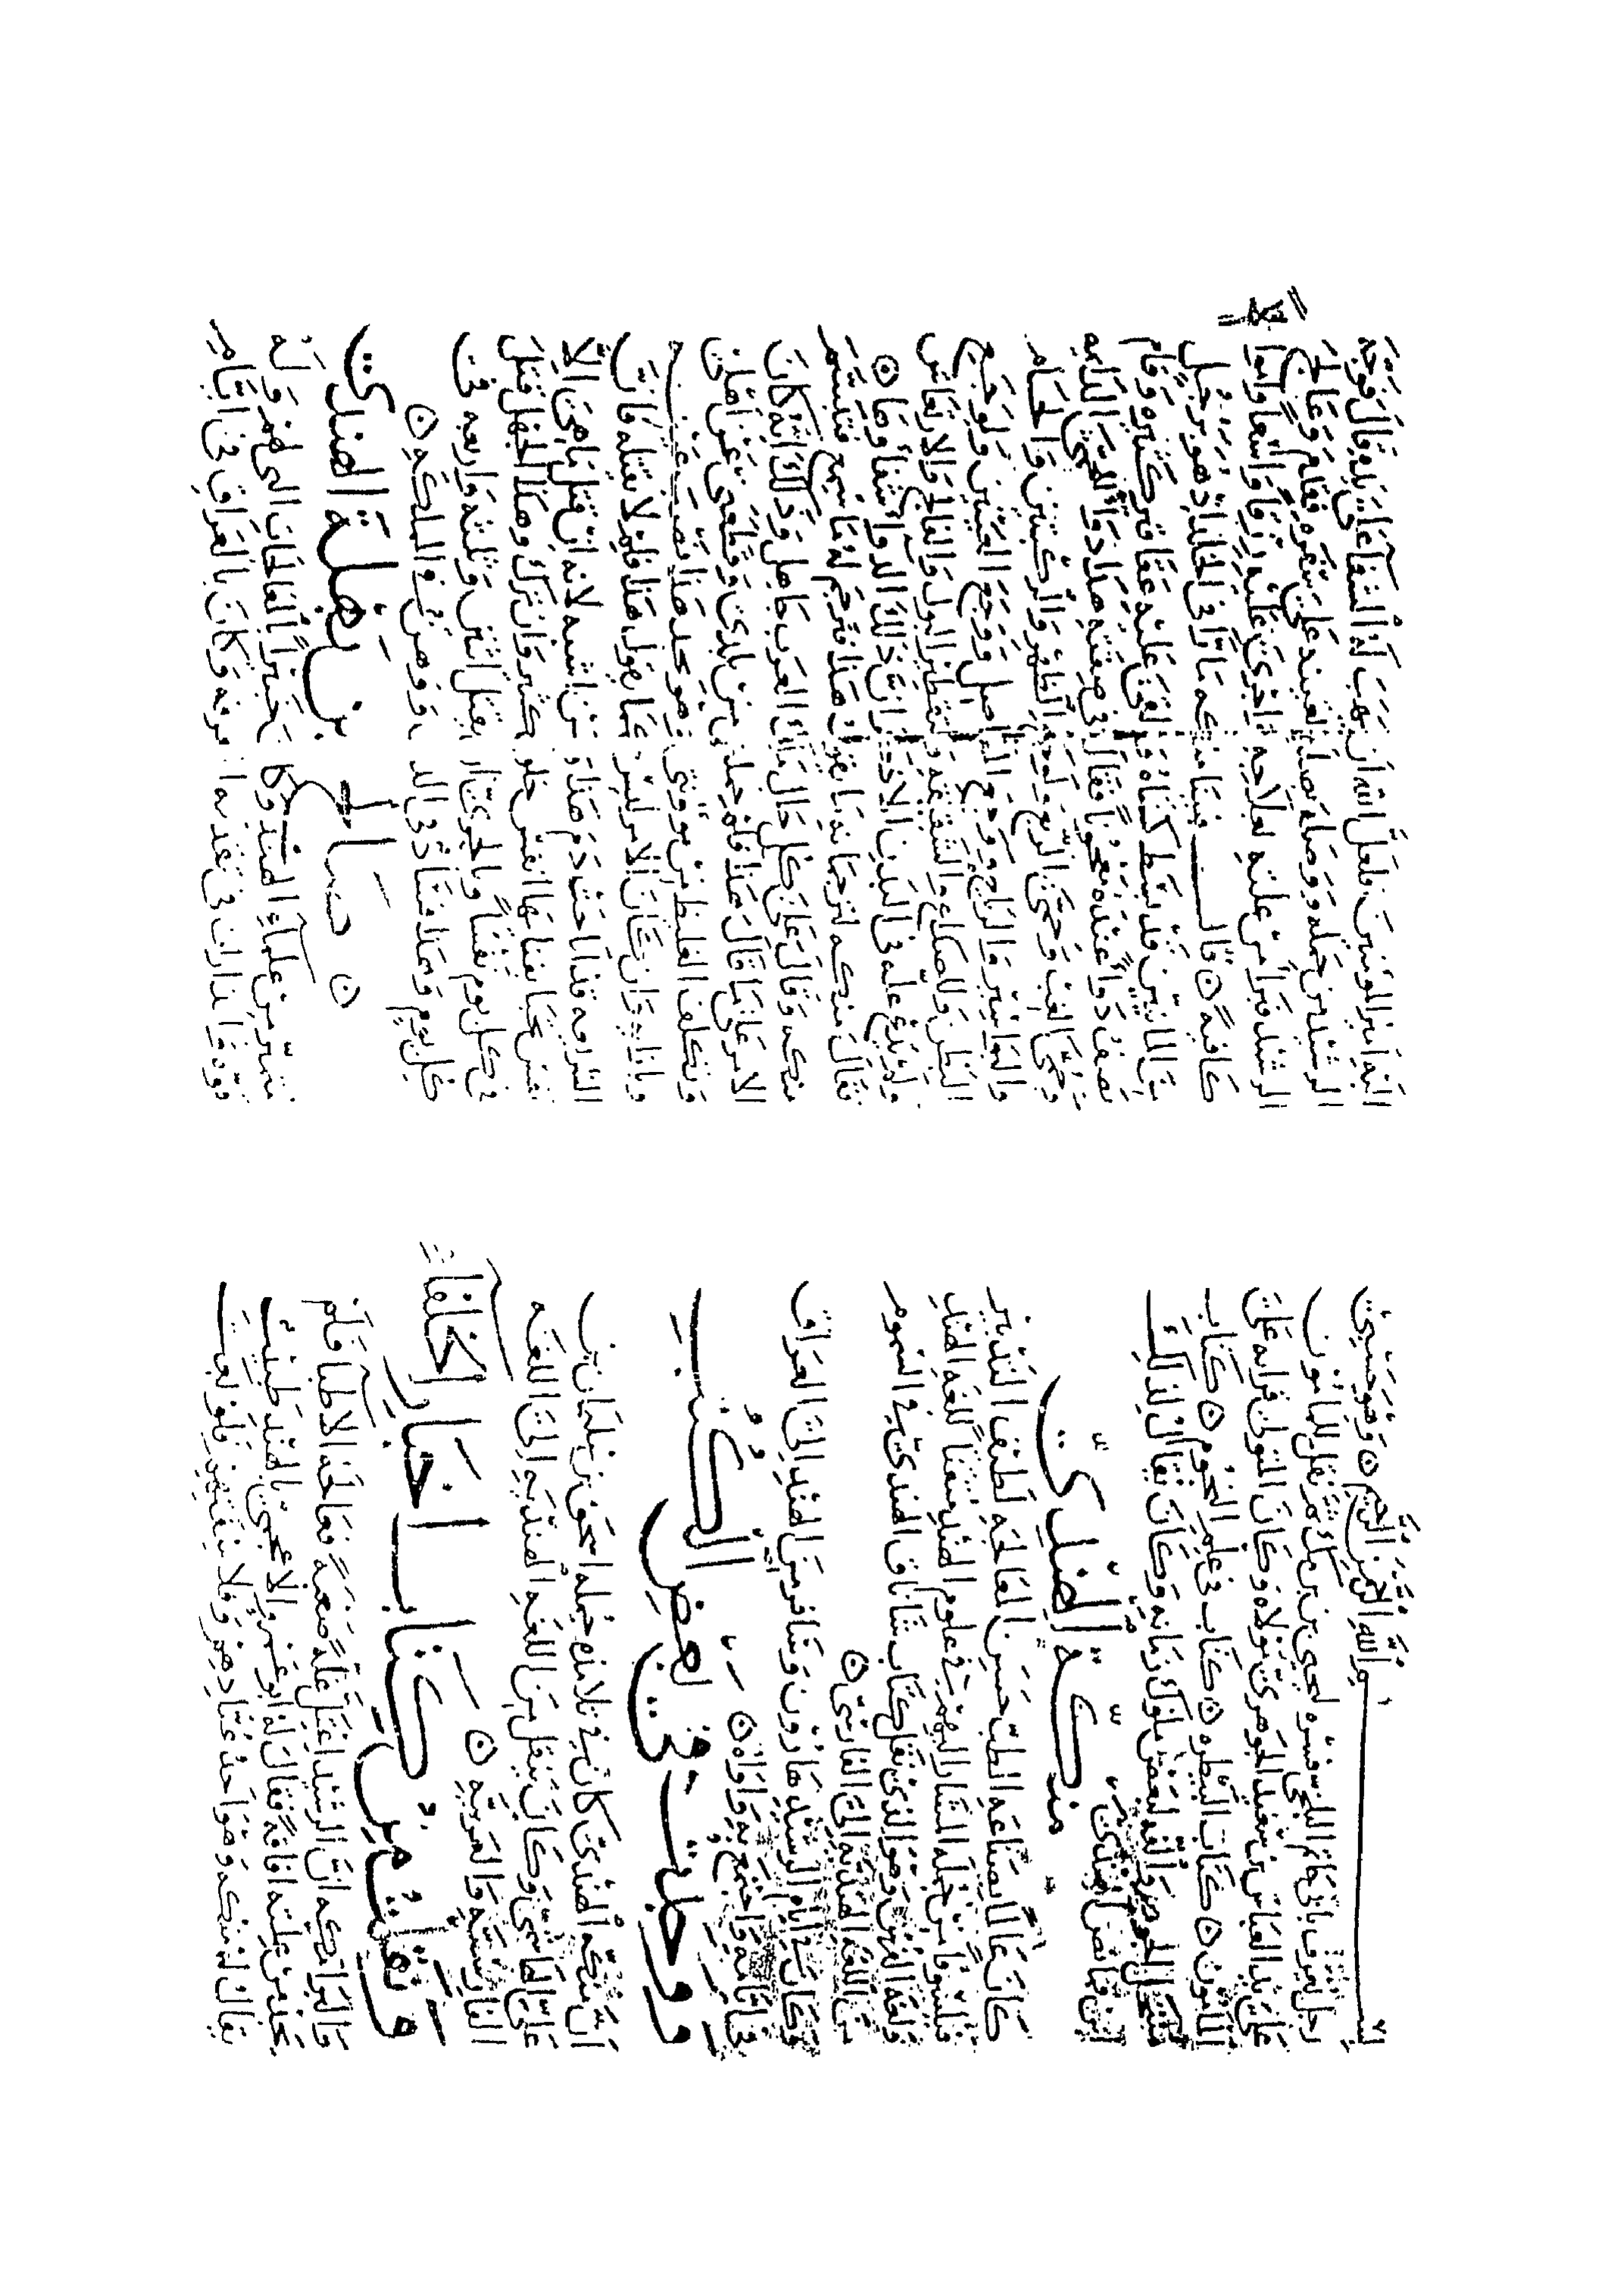 بسم الله الرحمن الرحيم ○ وهو حسبي
رجل يعرف بابي حاتم البلخي فسره ليحيى بن برمك ثم نقل للمامون
على يد العباس بن سعيد الجوهري مولاه وكان المتولى قراته على
المامون ○ كتاب البيطره ○ كتاب في علم النجوم ○ كتاب
منتحل الجوهر والفه لبعض ملوك زمانه وكان يقال لذلك
ابن قمانص الهندي
منكه الهندي
كان عالما بصناعة الطب حسن المعالجه لطيف التدبير
فيلسوفا من جملة المشار اليهم في علوم الهند متقنا للغة الهند
ولغة الفرس وهو الذي نقل كتاب شاناق الهندي في السموم
من اللغه الهنديه الى الفارسي ○
وكان في ايام الرشيد هارون وسافر من الهند الى العراق
في ايامه واجتمع به وداواه ○
ووجدت في بعض الكتب
ان منكه الهندي كان في جملة اسحق بن سليمان بن
علي الهاشمي وكان ينقل من اللغه الهنديه الى اللغه
الفارسيه والعربيه ○
ونقلت من كتاب اخبار الخلفاء
والبرامكه ان الرشيد اعتل علة صعبة فعالجه الاطبا فلم
يجد من علته افاقة فقال له ابو عمر الاعجمي بالهند طبيب
يقال له منكه وهو احد عبادهم وفلاسفتهم فلو بعث
اليه امير المومنين فلعل الله ان يهب له الشفا على يده قال فوجه
الرشيد من حمله ووصله بصلة تعينه على سفره فقدم وعالج
الرشيد فبرا من علته بعلاجه فاجرى عليه رزقا واسعا واموالا
كافية ○ قال فبينما منكه مارا في الخلد اذ هو برجل
من المانيين قد بسط كساه والقى عليه عقاقير كثيره وقام
يصف دواء عنده معجونا فقال في صفته هذا دواء للحمى الدايمه
وحمى الغب وحمى الربع ولوجع الظهر والركبتين والخام
والبواسير والرياح ووجع المفاصل ووجع العينين ولوجع
البطن والصداع والشقيقه ولتقطير البول والفالج والارتعاش
ولم يدع علة في البدن الا ذكر ان ذلك الدوا شفاوها ○
فقال منكه لترجمانه ما يقول هذا فترجم له ما سمع فتبسم
منكه وقال على كل حال ملك العرب جاهل وذلك انه ان كان
الامر على ما قال هذا فلم حملني من بلدي وقطعني عن اهلي
وتكلف الغليظ من موونتي وهو يجد هذا نصب عينه
وبازايه وان كان الامر ليس كما يقول هذا فلم لا يقتله فان
الشريعه قد اباحت دم هذا ومن اشبهه لانه ان قتل ما هي الا
نفس يحيا بفنايها انفس خلق كثير وان ترك وهذا الجهل قتل
في كل يوم نفسا وبالحرى ان يقتل اثنين وثلثه واربعه في
كل يوم وهذا فساد في الدين ووهن في المملكه ○
صالح بن بهلة الهندي ○
متميز من علماء الهند وكان خبيرا بالمعالجات التي لهم وله
قوة وانذارات في تقدمة المعرفه وكان بالعراق في ايام